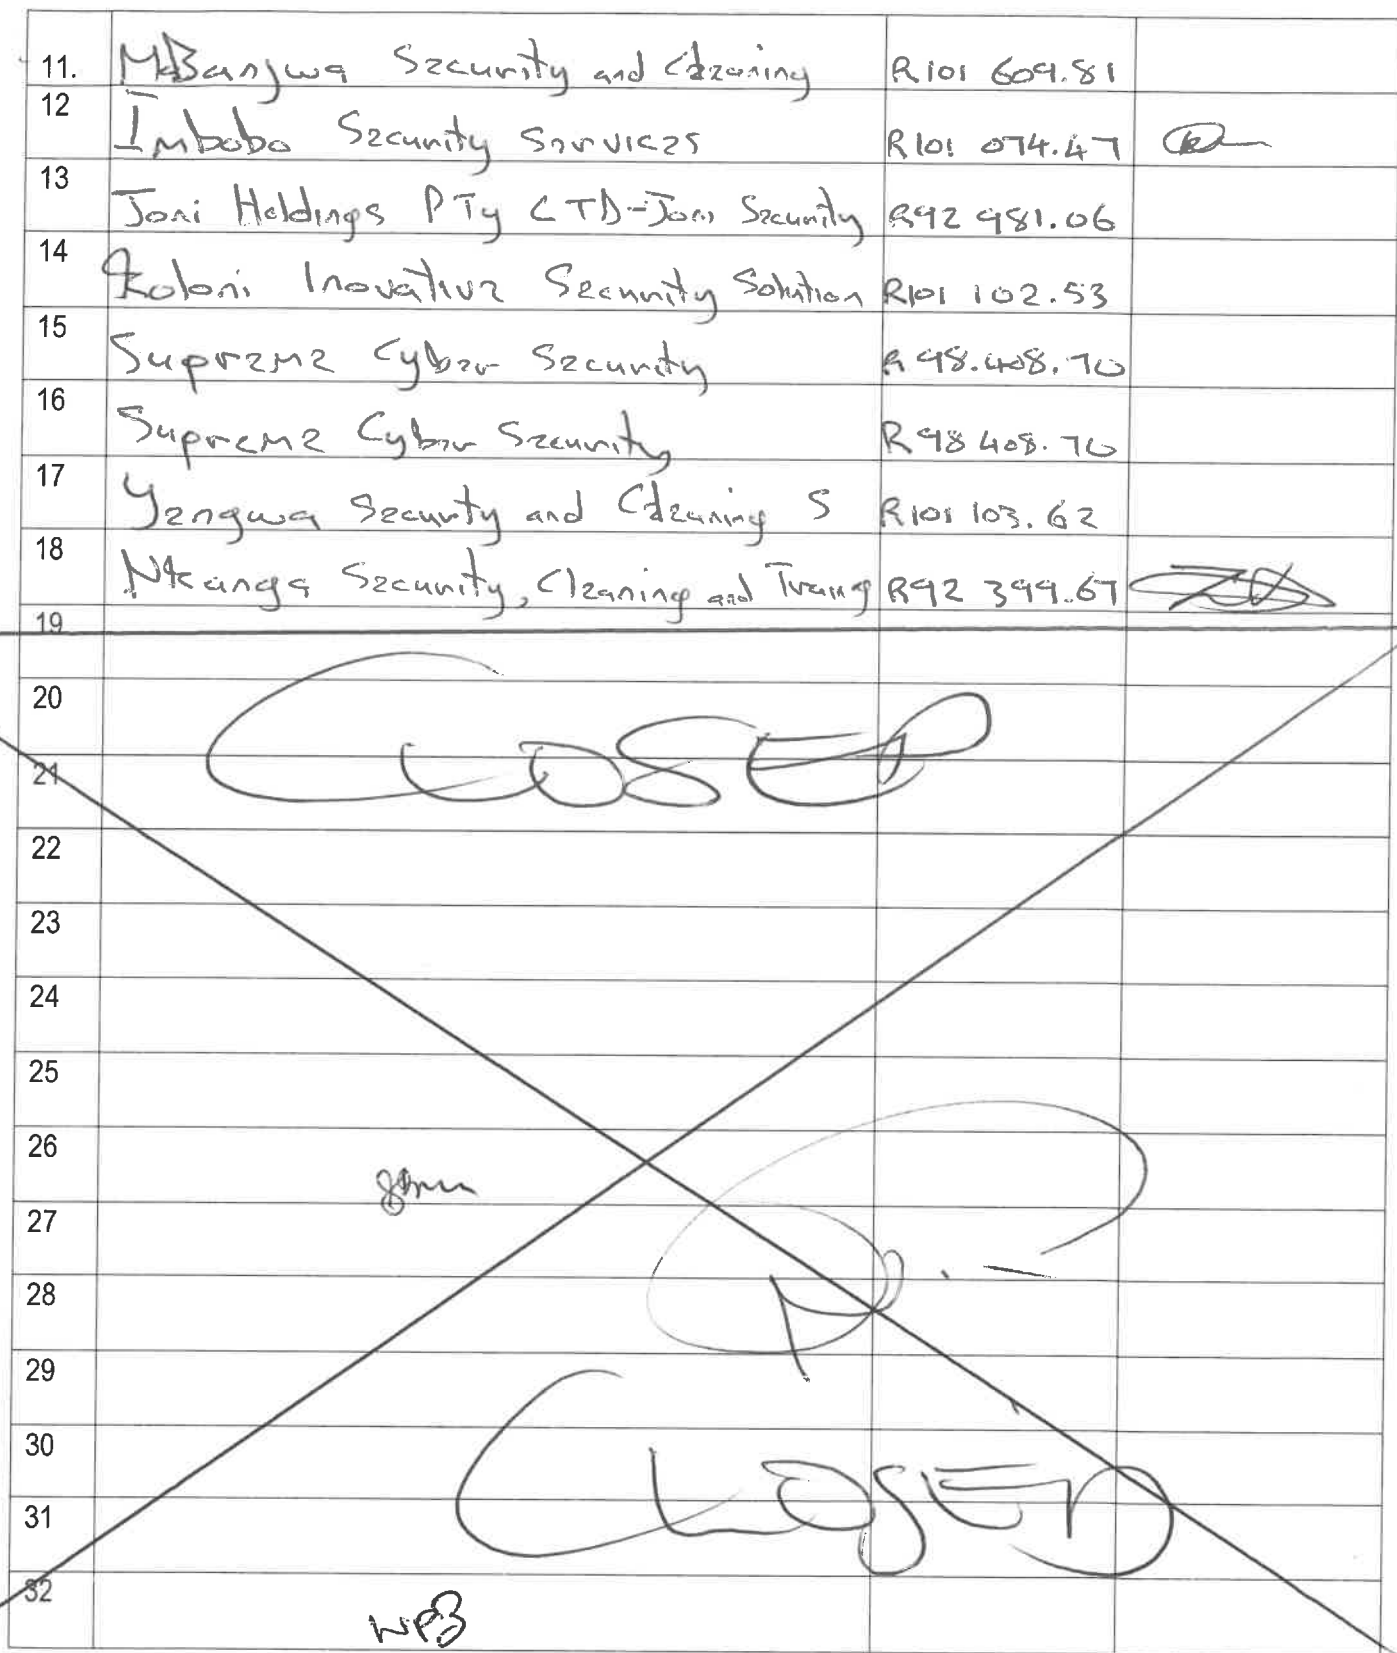 11. MaBanjwa Security and Cleaning R101 609.81
12 Imbobo Security Services R101 074.47
13 Joni Holdings PTy LTD-Joni Security R92 981.06
14 Koloni Inovative Security Solution R101 102.53
15 Supreme Cyber Security R98.408.70
16 Supreme Cyber Security R98 408.70
17 Yengwa Security and Cleaning S R101 103.62
18 Nkanga Security, Cleaning and Traing R92 399.67
19
20
CLOSED
21
22
23
24
25
26
27
28
29
30
CLOSED
31
32
WPB